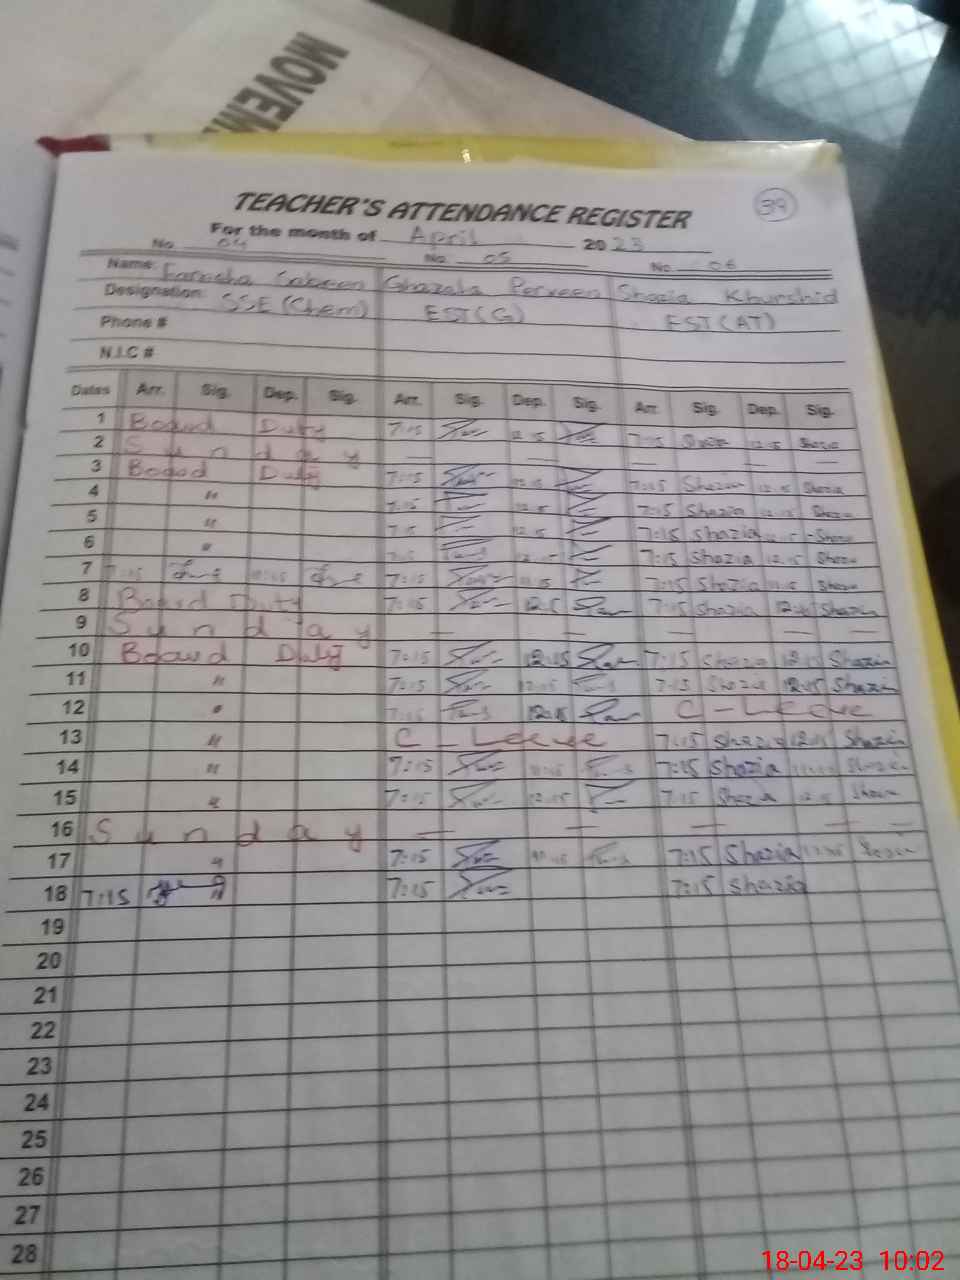 MOVEM
TEACHER'S ATTENDANCE REGISTER 39
For the month of April 2023
No. 04 No. 05 No. 06
Name: Ghazala Perveen Shazia Khurshid
Designation: SSE (Chem) EST (G) EST (AT)
Phone #
N.I.C #
Dates Arr. Sig. Dep. Sig. Arr. Sig. Dep. Sig. Arr. Sig. Dep. Sig.
1 Board Duty 7:15 12.15 7:15 12.15 Shazia
2 Sunday — — — — — —
3 Board Duty 7:15 12.15 7:15 Shazia 12.15 Shazia
4 " 7:15 12.15 7:15 Shazia 12.15 Shazia
5 " 7:15 12.15 7:15 Shazia Shazia
6 " 7:15 12.15 7:15 Shazia 12.15 Shazia
7 7:15 11:15 7:15 11.15 7:15 Shazia 11.15 Shazia
8 Board Duty 7:15 12.15 7:15 Shazia 12:15 Shazia
9 Sunday — — — — —
10 Board Duty 7:15 12:15 7:15 Shazia 12:15 Shazia
11 " 7:15 12:15 7:15 Shazia 12:15 Shazia
12 " 7:15 12:15 C - Leave
13 " C - Leave 7:15 Shazia 12:15 Shazia
14 " 7:15 7:15 Shazia Shazia
15 " 7:15 12.15 7:15 Shazia 12.15 Shazia
16 Sunday — — — — —
17 " 7:15 7:15 Shazia Shazia
18 7:15 " 7:15 7:15 Shazia
19
20
21
22
23
24
25
26
27
28
18-04-23 10:02